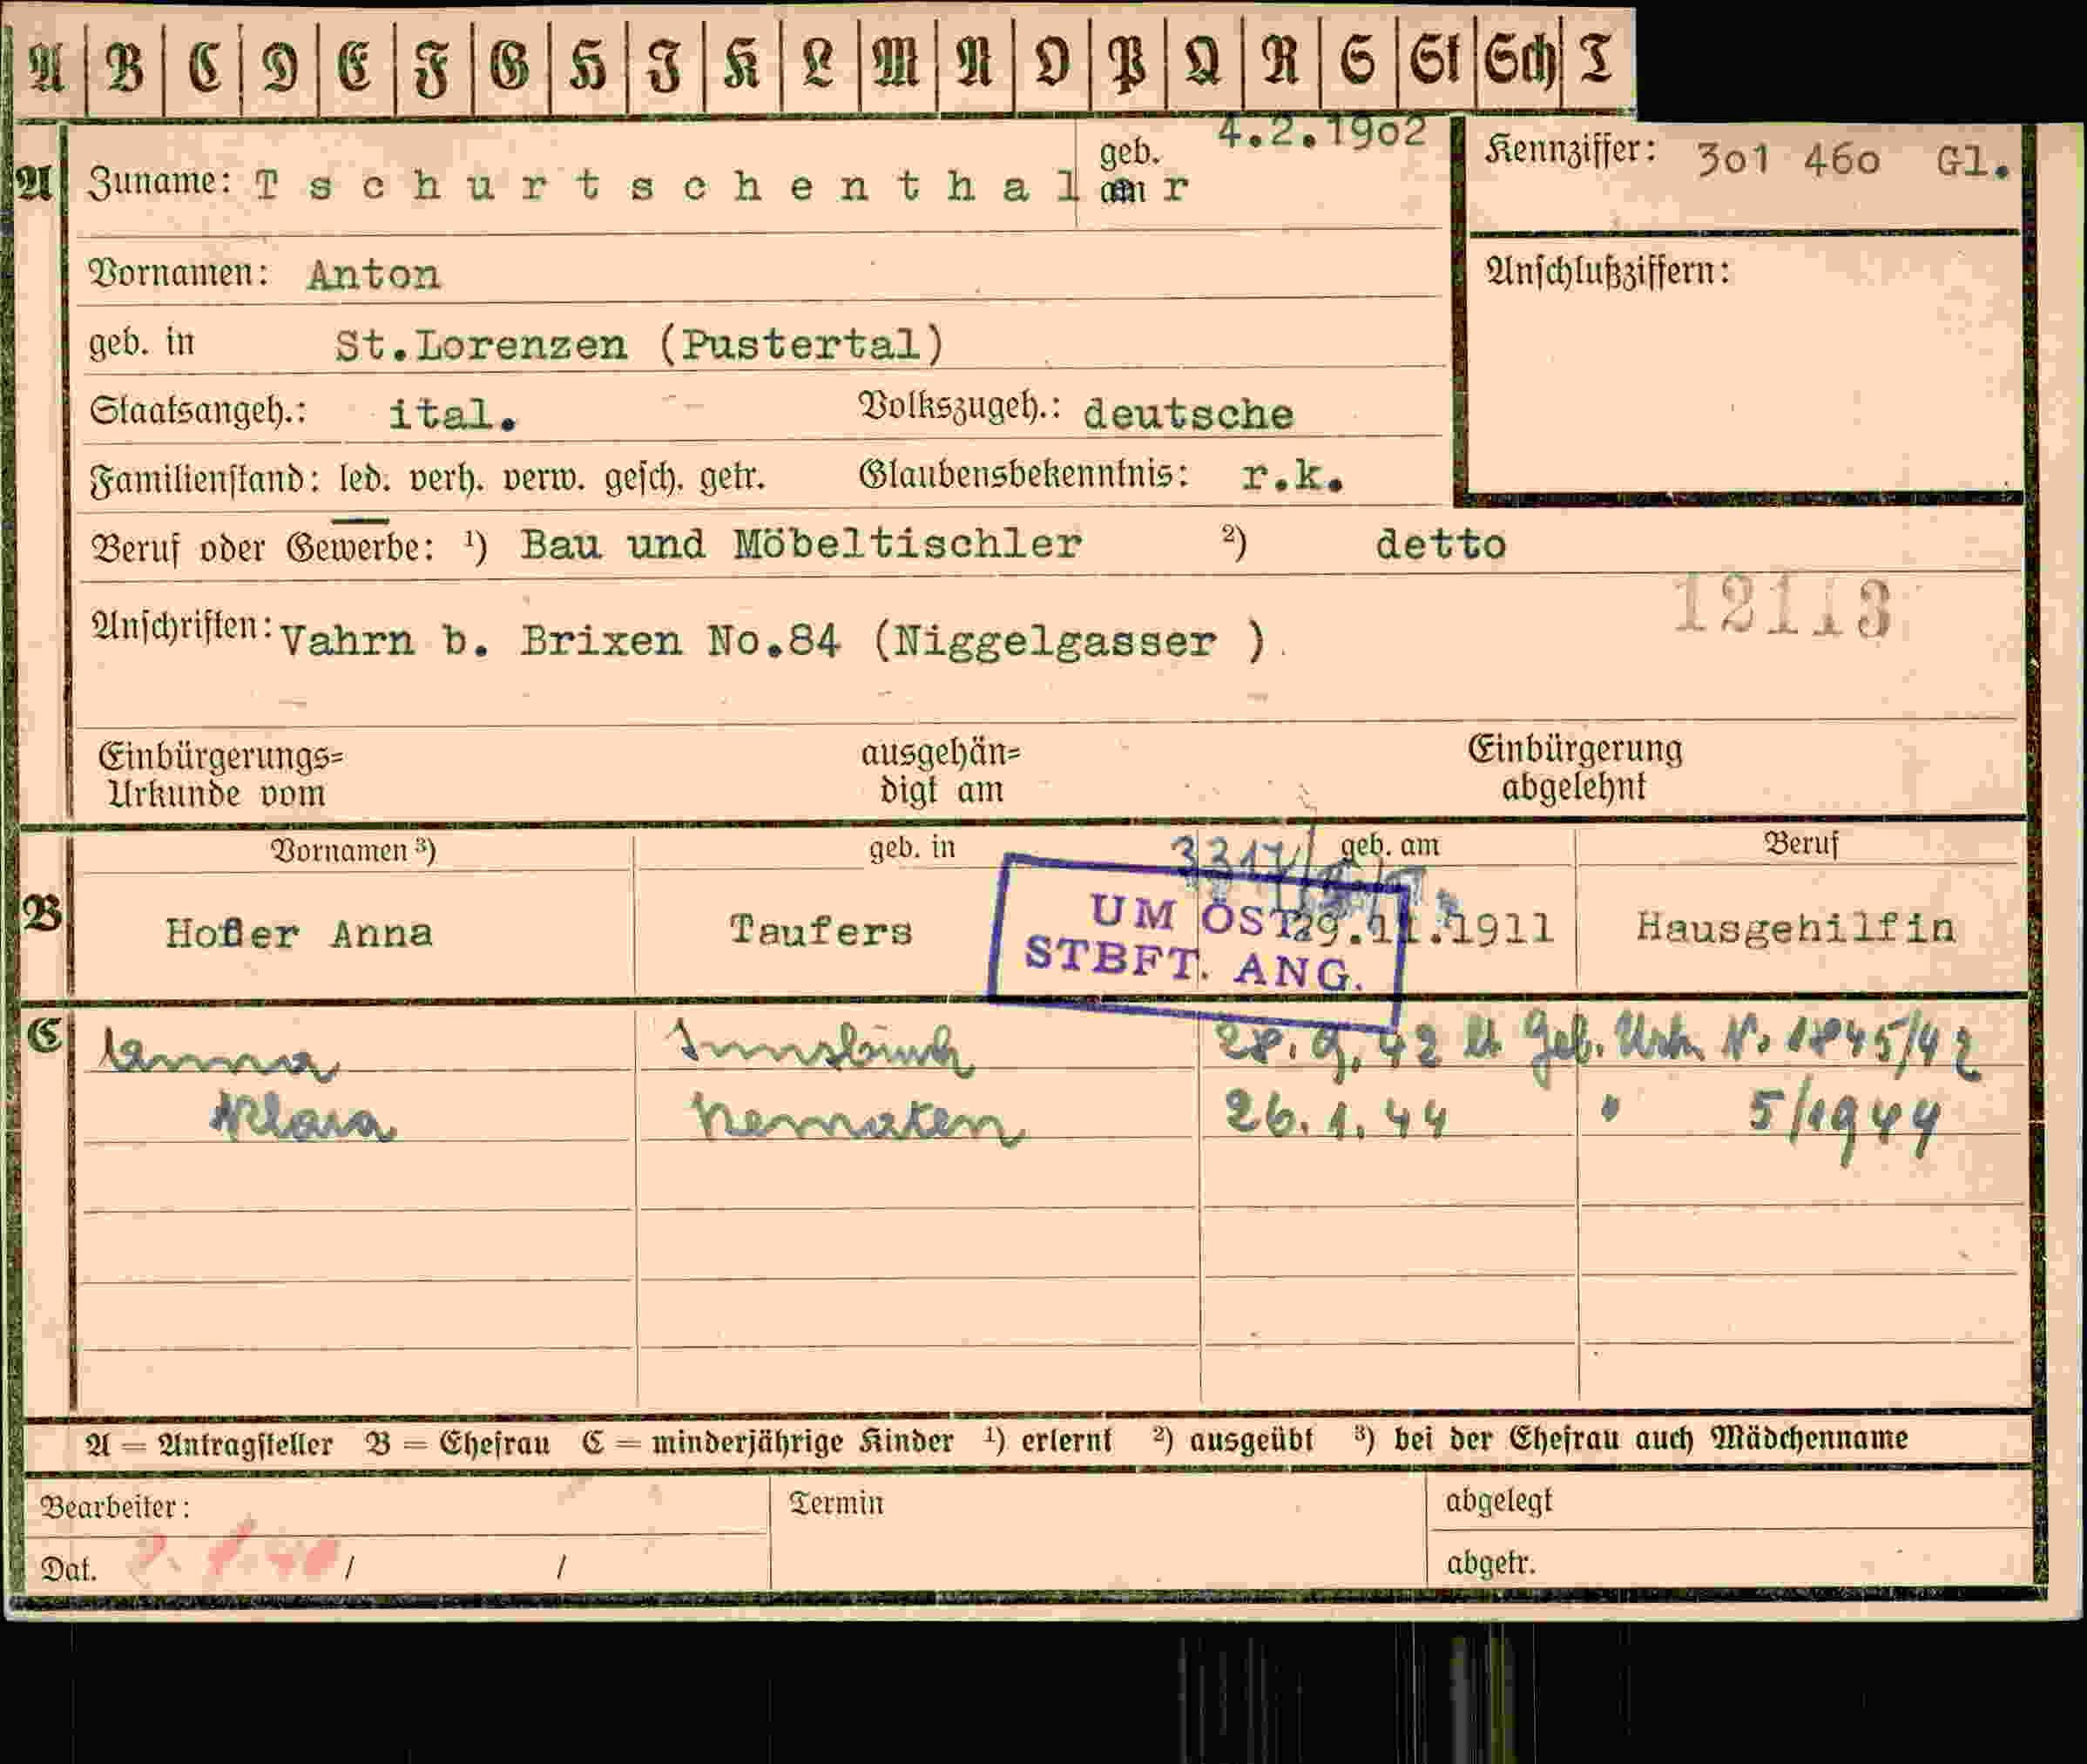 A B C D E F G H I K L M N O P Q R S St Sch T
A Zuname: Tschurtschenthaler geb. am 4.2.1902 Kennziffer: 301 460 Gl.
Vornamen: Anton Anschlußziffern:
geb. in St.Lorenzen (Pustertal)
Staatsangeh.: ital. Volkszugeh.: deutsche
Familienstand: led. verh. verw. gesch. getr. Glaubensbekenntnis: r.k.
Beruf oder Gewerbe: ¹) Bau und Möbeltischler ²) detto
12113
Anschriften: Vahrn b. Brixen No.84 (Niggelgasser )
Einbürgerungs= ausgehän= Einbürgerung
Urkunde vom digt am abgelehnt
Vornamen ³) geb. in geb. am Beruf
B Hofer Anna Taufers 29.11.1911 Hausgehilfin
UM ÖST.
STBFT. ANG.
C Anna Innsbruck 28.9.42 lt. Geb. Urk. No 1845/42
Klara Kematen 26.1.44 " 5/1944
A = Antragsteller B = Ehefrau C = minderjährige Kinder ¹) erlernt ²) ausgeübt ³) bei der Ehefrau auch Mädchenname
Bearbeiter: Termin abgelegt
Dat. / / abgetr.